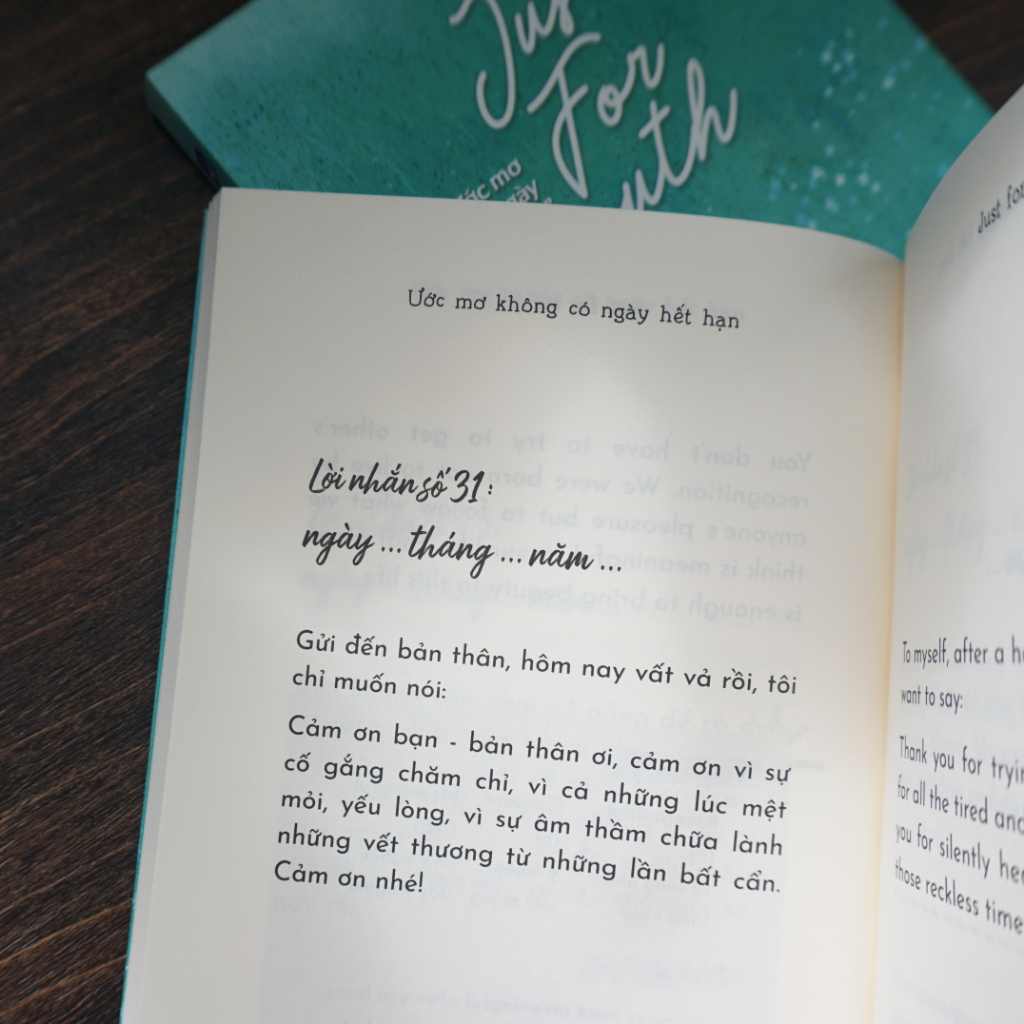 For
ước mơ
Ước mơ không có ngày hết hạn
Just for
Lời nhắn số 31:
ngày ... tháng ... năm ...
Gửi đến bản thân, hôm nay vất vả rồi, tôi
chỉ muốn nói:
Cảm ơn bạn - bản thân ơi, cảm ơn vì sự
cố gắng chăm chỉ, vì cả những lúc mệt
mỏi, yếu lòng, vì sự âm thầm chữa lành
những vết thương từ những lần bất cẩn.
Cảm ơn nhé!
To myself, after a
want to say:
Thank you for
for all the tired and
you for silently
those reckless